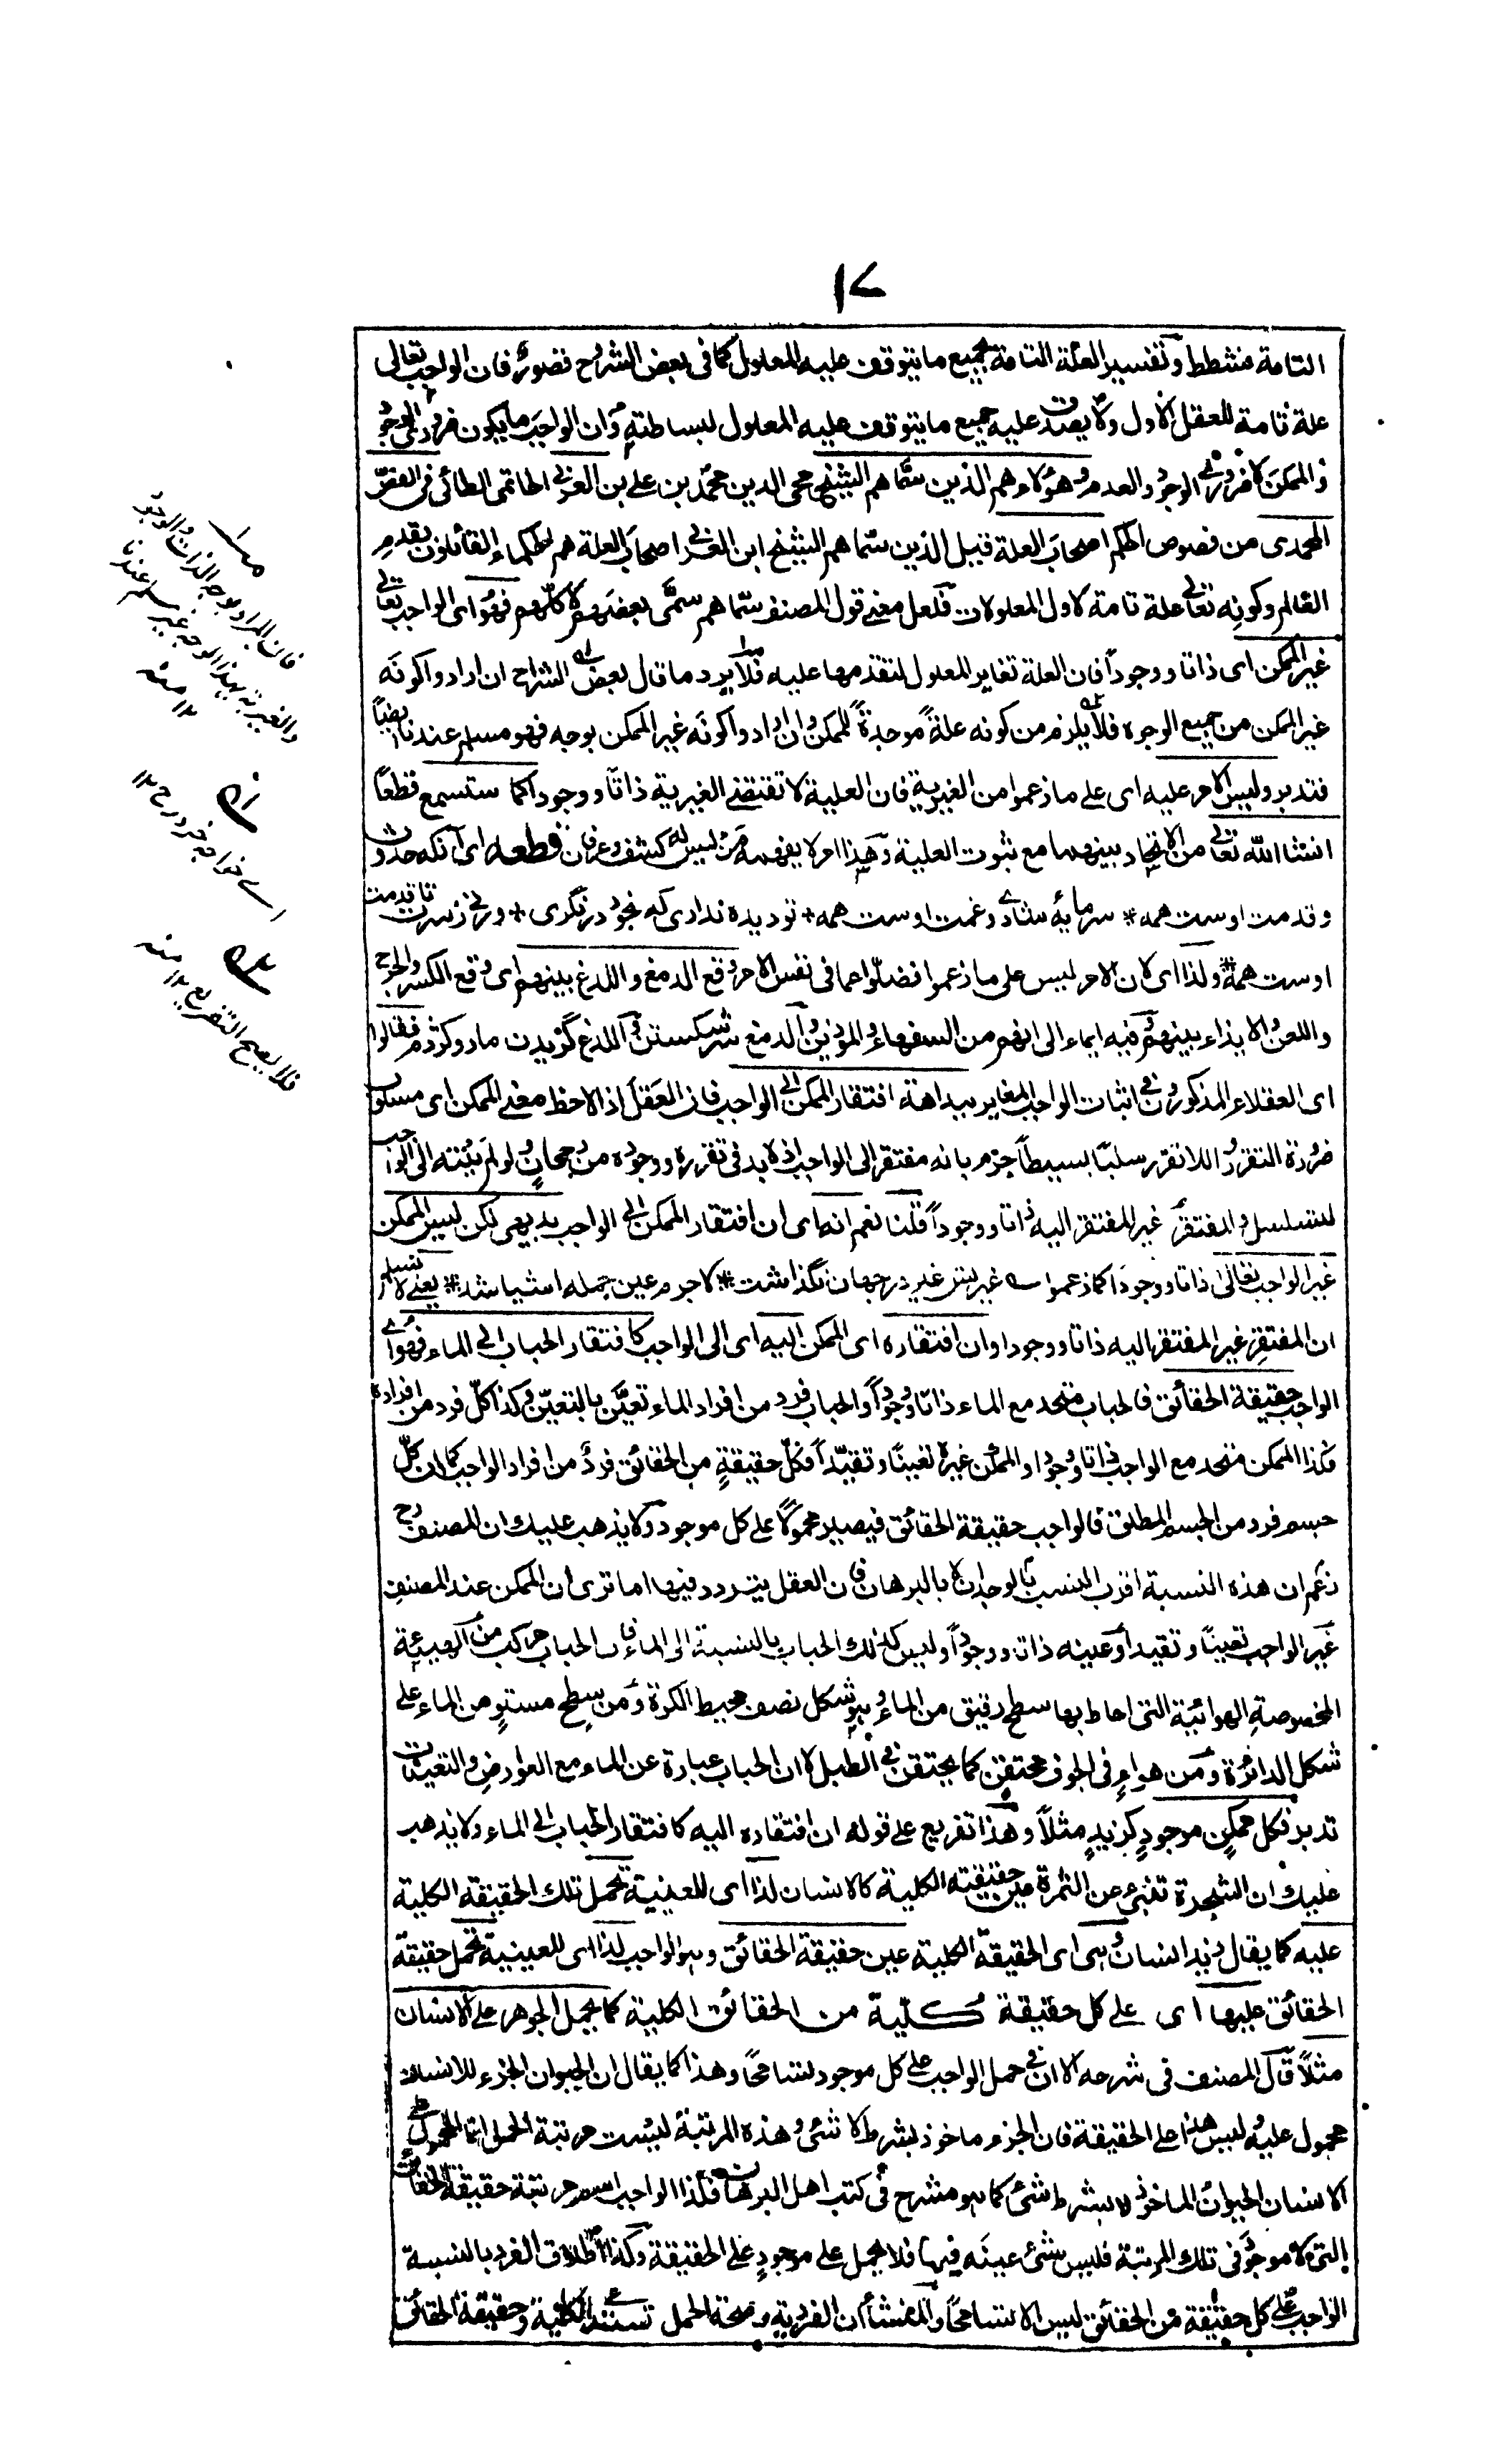 ١٧
التامة منشطط وتفسير العلة التامة بجميع ما يتوقف عليه المعلول كما فى بعض الشروح قصور فان الواجب تعالى
علة تامة للعقل الاول ولا يصدق عليه جميع ما يتوقف عليه المعلول لبساطته وان الواجب ما يكون ضرورى الوجود
والممكن لا ضرورى الوجود والعدم وهؤلاء هم الذين سماهم الشيخ محى الدين محمد بن على بن العربى الحاتمى الطائى فى الفص
المحمدى من فصوص الحكم اصحاب العلة قيل الذين سماهم الشيخ ابن العربى اصحاب العلة هم الحكماء القائلون بقدم
العالم وكونه تعالى علة تامة لاول المعلولات فلعل معنى قول المصنف سماهم سمى بعضهم لا كلهم فهو اى الواجب تعالى
غير الممكن اى ذاتا ووجوداً فان العلة تغاير المعلول لتقدمها عليه فلا يرد ما قال بعض الشراح ان ارادوا كونه
غير الممكن من جميع الوجوه فلا يلزم من كونه علةً موجدةً للممكن وان ارادوا كونه غير الممكن بوجه فهو مسلم عندنا ايضاً
فتدبر وليس الامر عليه اى على ما زعموا من الغيرية فان العلية لا تقتضى الغيرية ذاتاً ووجوداً كما ستسمع قطعاً
انشاء الله تعالى من الاتحاد بينهما مع ثبوت العلية وهذا امر لا يفهمه من ليس له كشف وعرفان قطعه اى آنكه حدوث
وقدمت اوست همه * سرمايهٔ شادى وغمت اوست همه * تو ديده ندارى كه بخود درنگرى * ورنى زسرت تا قدمت
اوست همه * ولذا اى لان الامر ليس على ما زعموا فضلوا عما فى نفس الامر وقع الدمغ واللدغ بينهم اى وقع الكسر والجرح
واللعن والايذاء بينهم ففيه ايماء الى انهم من السفهاء والموذين والدمغ سر شكستن واللدغ گزيدن مار وكژدم فقالوا
اى العقلاء المذكورون فى اثبات الواجب المغاير بداهة افتقار الممكن الى الواجب فان العقل اذا لاحظ معنى الممكن اى مسلوب
ضرورة التقرر واللاتقرر سلبًا بسيطاً جزم بانه مفتقر الى الواجب اذ لا بد فى تقرره ووجوده من رجحان ولو لم ينته الى الواجب
لتسلسل والمفتقر غير المفتقر اليه ذاتا ووجوداً قلنا نعم انه اى ان افتقار الممكن الى الواجب بديهى لكن ليس الممكن
غير الواجب تعالى ذاتا ووجودا كما زعموا غيرتش غير در جهان نگذاشت * لاجرم عين جمله اشيا شد * يعنى لا نسلم
ان المفتقر غير المفتقر اليه ذاتا ووجودا وان افتقاره اى الممكن اليه اى الى الواجب كافتقار الحباب الى الماء فهو اى
الواجب حقيقة الحقائق فالحباب متحد مع الماء ذاتا ووجوداً والحباب فرد من افراد الماء تعيّن بالتعيّن وكذا كل فرد من افراده
فكذا الممكن متحد مع الواجب ذاتا ووجودا والممكن غيره تعينًا وتقيّداً فكل حقيقةٍ من الحقائق فردٌ من افراد الواجب كما ان كل
جسم فرد من الجسم المطلق فالواجب حقيقة الحقائق فيصير محمولًا على كل موجود ولا يذهب عليك ان المصنف رح
زعم ان هذه النسبة اقرب النسب بالوجدان لا بالبرهان فان العقل يتردد فيها اما ترى ان الممكن عند المصنف
غير الواجب تعينًا وتقيدا وعينه ذاتا ووجوداً وليس كذلك الحباب بالنسبة الى الماء فان الحباب مركب من الهيئة
المخصوصة الهوائية التى احاط بها سطح رقيق من الماء وهو شكل نصف محيط الكرة ومن سطح مستوٍ من الماء على
شكل الدائرة ومن هواءٍ فى الجوف محتقن كما يحتقن فى الطبل لا ان الحباب عبارة عن الماء مع العوارض والتعينات
تدبر فكل ممكنٍ موجودٍ كزيدٍ مثلاً وهذا تفريع على قوله ان افتقاره اليه كافتقار الحباب الى الماء ولا يذهب
عليك ان الشجرة تنبئ عن الثمرة عين حقيقته الكلية كالانسان لذا اى للعينية تحمل تلك الحقيقة الكلية
عليه كما يقال زيد انسان وهى اى الحقيقة الكلية عين حقيقة الحقائق وهو الواجب لذا اى للعينية تحمل حقيقة
الحقائق عليها اى على كل حقيقة كلّية من الحقائق الكلية كما يحمل الجوهر على الانسان
مثلاً قال المصنف فى شرحه الا ان فى حمل الواجب على كل موجود تسامحًا وهذا كما يقال ان الحيوان الجزء للانسان
محمول عليه وليس هذا على الحقيقة فان الجزء ماخوذ بشرط لا شئ وهذه المرتبة ليست مرتبة الحمل انما المحمول على
الانسان الحيوان الماخوذ لا بشرط شئ كما هو مشرح فى كتب اهل البرهان فكذا الواجب اسم مرتبة حقيقة الحقائق
التى لا موجود فى تلك المرتبة فليس شئ عينه فيها فلا يحمل على موجودٍ على الحقيقة وكذا اطلاق الفرد بالنسبة
الواجب على كل حقيقة من الحقائق ليس الا تسامحًا والمنشأ ان الفردية وصحة الحمل تستند الكلية وحقيقة الحقائق
فان المراد بوجه الذات والوجود
والغيرية بهذا الوجه غير مسلم عندنا
١٢ منه
اى خواجه خورد رح ١٢
فلا يصح التفريع ١٢ منه